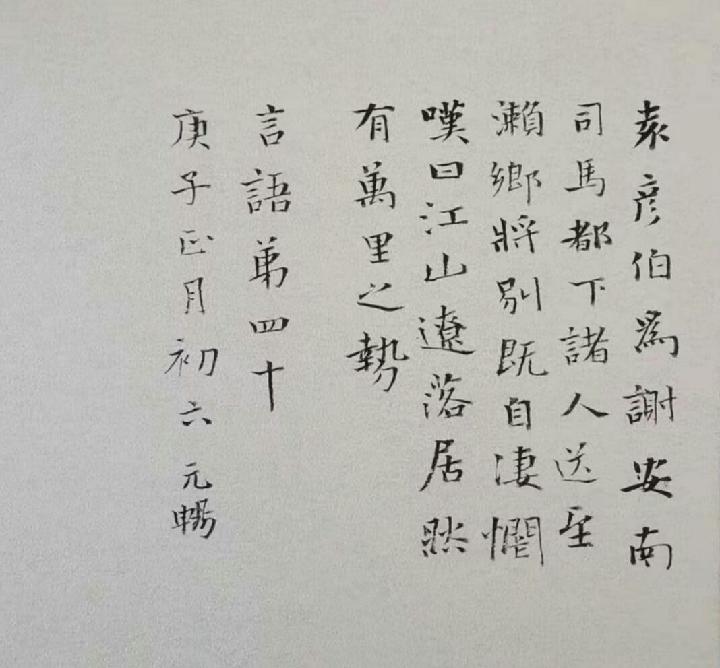 袁彦伯為謝安南
司馬都下諸人送至
瀨鄉將別既自凄惘
嘆曰江山遼落居然
有萬里之勢
言語第四十
庚子正月初六 元暢